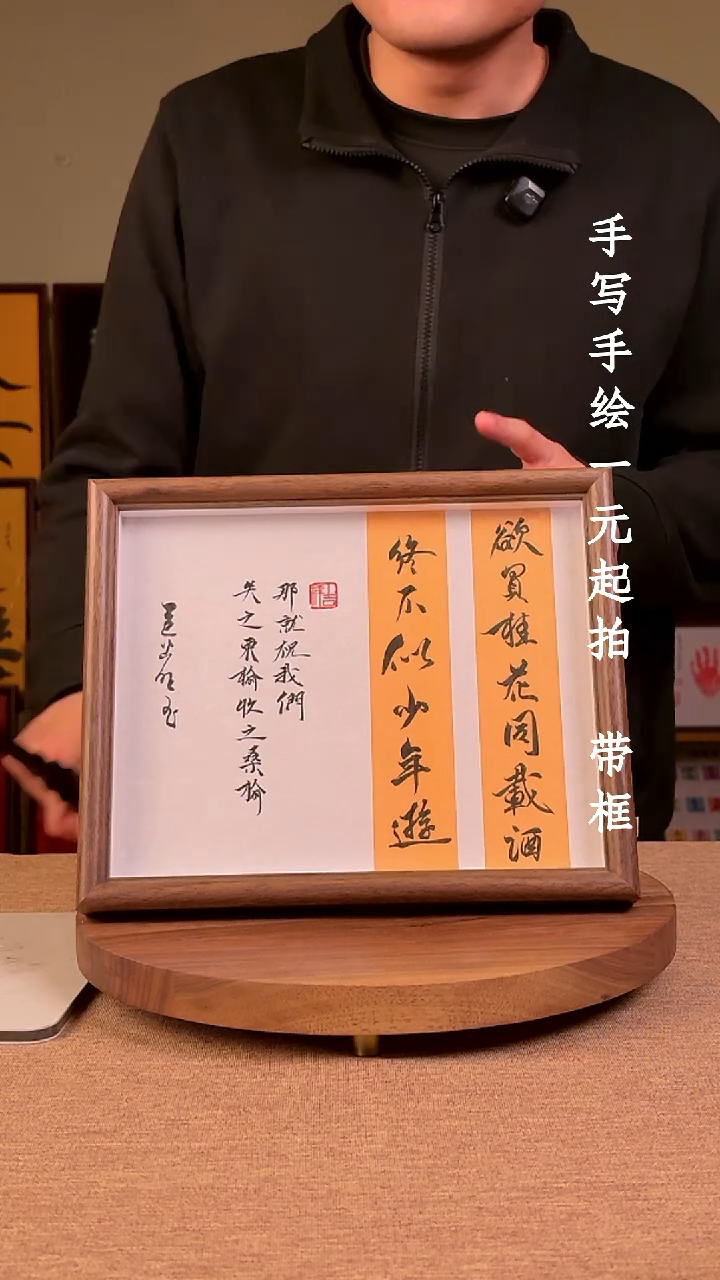 手写手绘一元起拍 带框
欲買桂花同載酒
終不似少年遊
那就祝我們
失之東榆收之桑榆